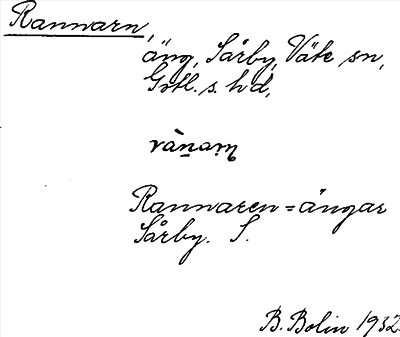 Rannarn,
äng, Sårby, Väte sn,
Gotl. s. hd,
vànaɱ
Rannaren = ängar
Sårby. S.
B. Bolin 1932.